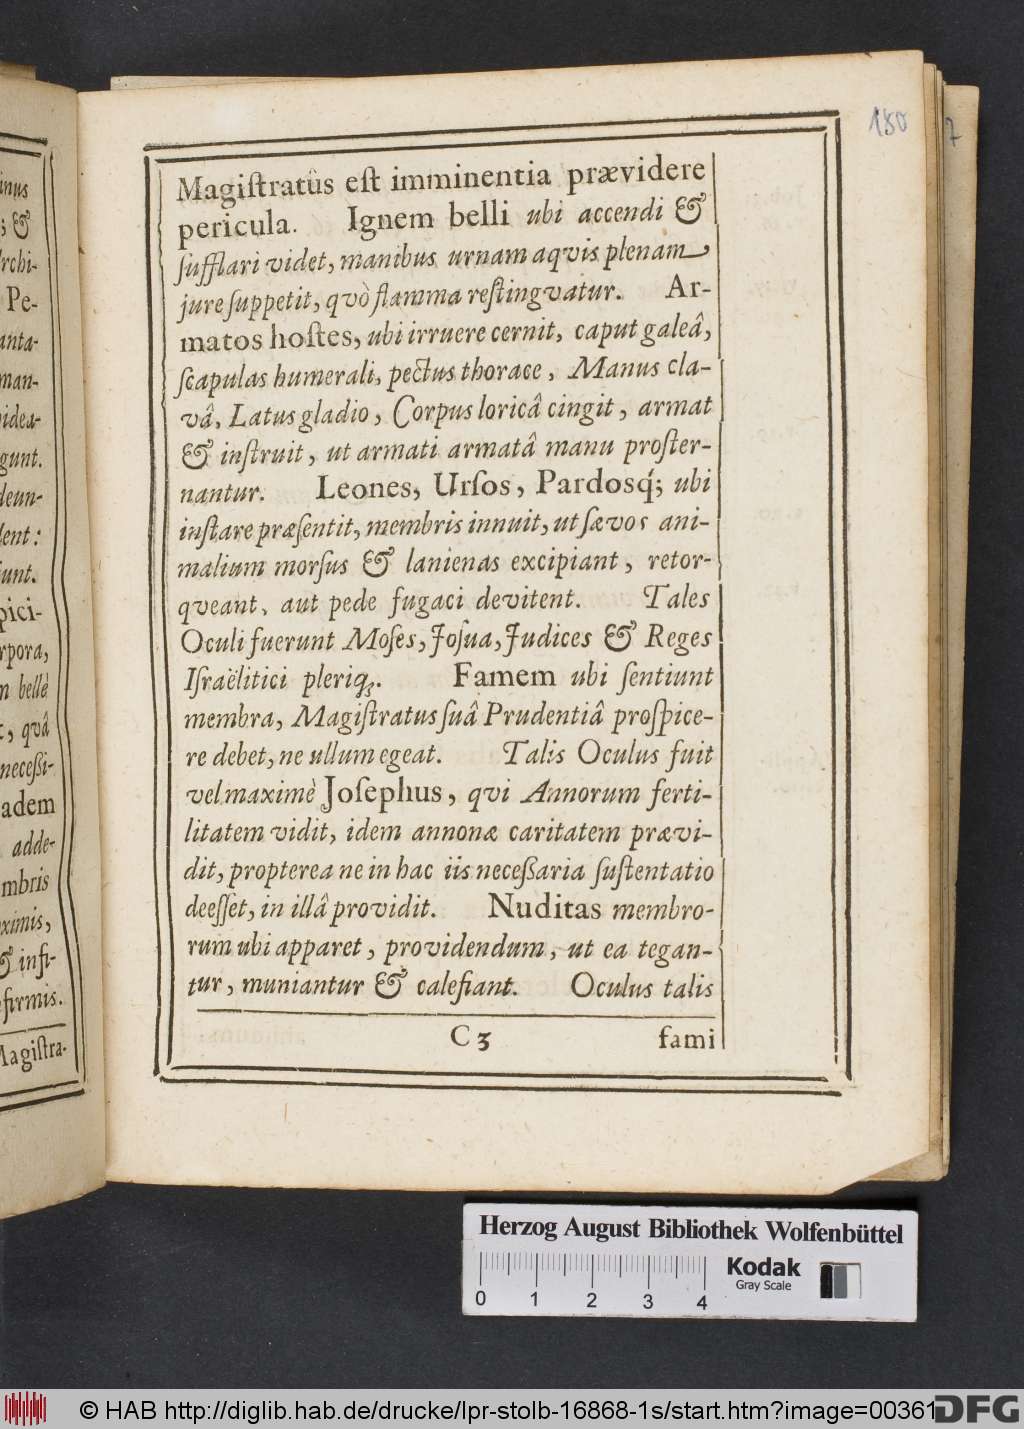 180
7
inus
s &
rchi-
Pe-
anta-
man-
videa-
gunt.
deun-
lent:
iunt.
pici-
rpora,
n bellè
, quâ
neceßi-
adem
adde-
mbris
ximis,
& infi-
firmis.
Magiſtra-
Magiſtratûs eſt imminentia prævidere
pericula. Ignem belli ubi accendi &
ſufflari videt, manibus urnam aqvis plenam
jure ſuppetit, qvò flamma reſtingvatur. Ar-
matos hoſtes, ubi irruere cernit, caput galeâ,
ſcapulas humerali, pectus thorace, Manus cla-
vâ, Latus gladio, Corpus loricâ cingit, armat
& inſtruit, ut armati armatâ manu proſter-
nantur. Leones, Urſos, Pardosq́; ubi
inſtare præſentit, membris innuit, ut ſævos ani-
malium morſus & lanienas excipiant, retor-
qveant, aut pede fugaci devitent. Tales
Oculi fuerunt Moſes, Joſua, Judices & Reges
Iſraëlitici pleriq;. Famem ubi ſentiunt
membra, Magiſtratus ſuâ Prudentiâ proſpice-
re debet, ne ullum egeat. Talis Oculus fuit
vel maximè Joſephus, qvi Annorum ferti-
litatem vidit, idem annonæ caritatem prævi-
dit, propterea ne in hac iis neceßaria ſuſtentatio
deeſſet, in illâ providit. Nuditas membro-
rum ubi apparet, providendum, ut ea tegan-
tur, muniantur & calefiant. Oculus talis
C 3 fami
Herzog August Bibliothek Wolfenbüttel
0 1 2 3 4
Kodak
Gray Scale
© HAB http://diglib.hab.de/drucke/lpr-stolb-16868-1s/start.htm?image=00361
DFG